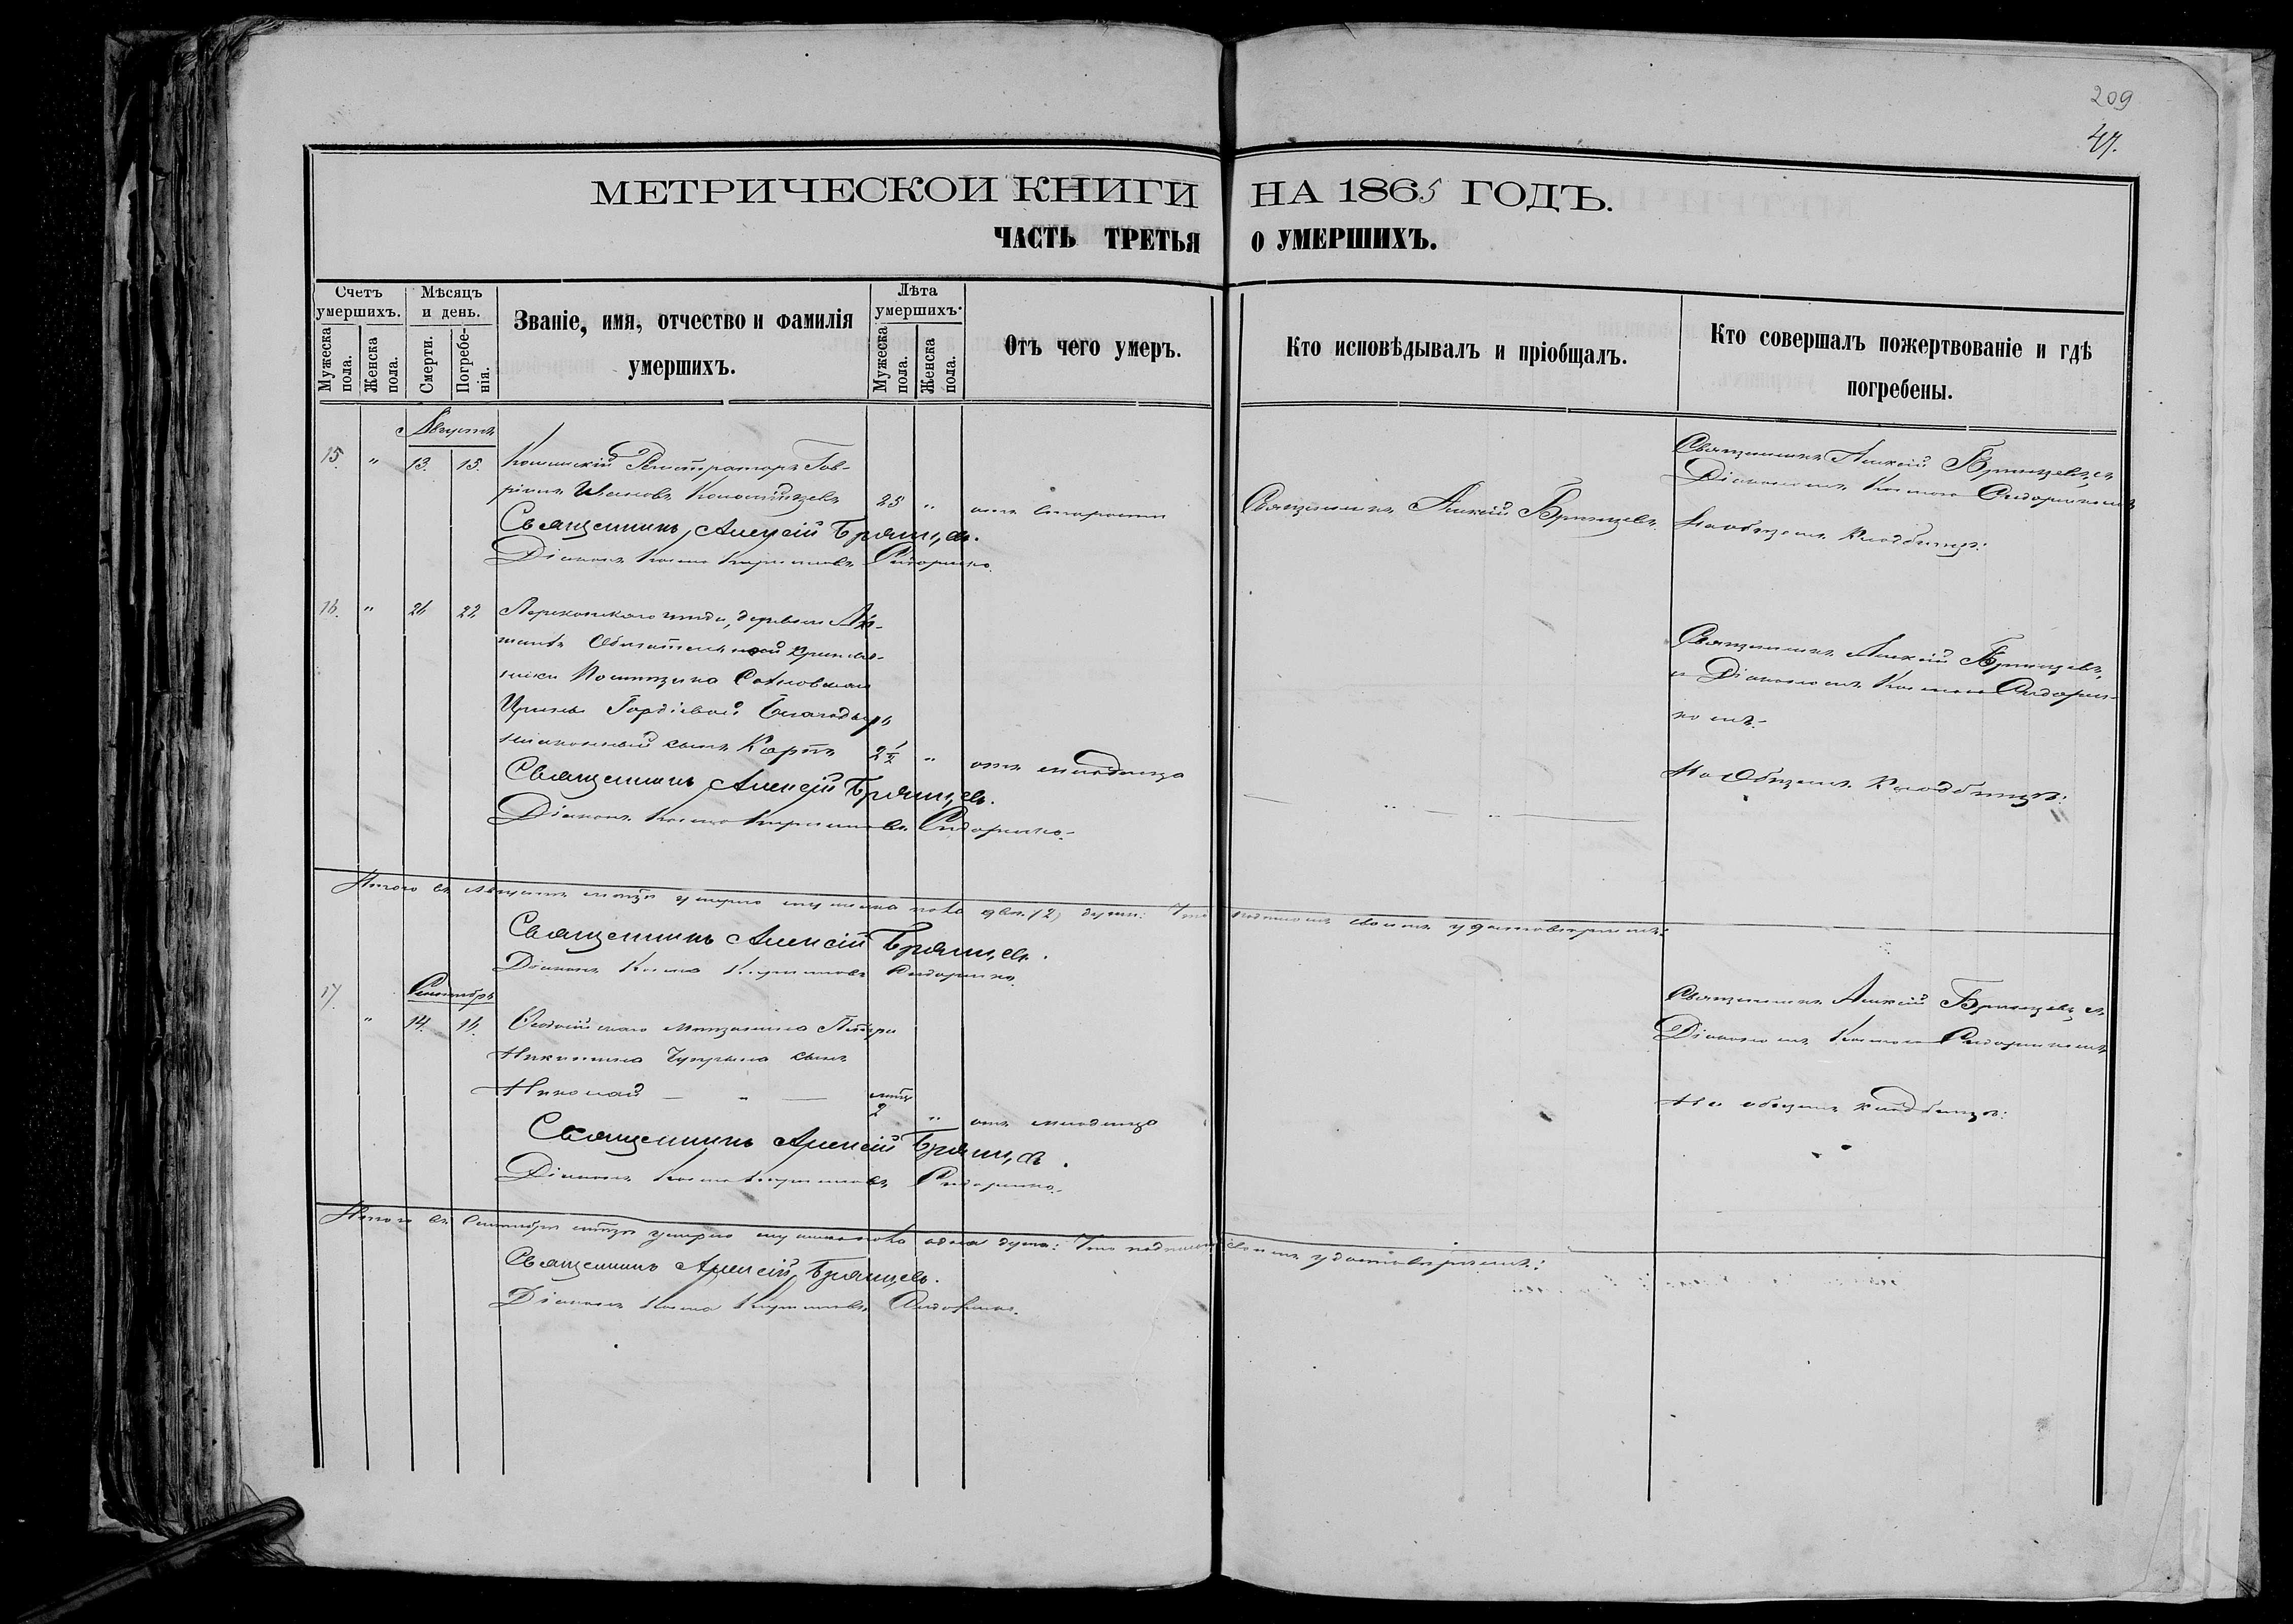 209
47.
МЕТРИЧЕСКОЙ КНИГИ НА 1865 ГОДЪ.
ЧАСТЬ ТРЕТЬЯ О УМЕРШИХЪ.
Счетъ умершихъ.
Мужеска пола.
Женска пола.
Мѣсяцъ и день.
Смерти.
Погребенія.
Званіе, имя, отчество и фамилія
умершихъ.
Лѣта умершихъ.
Мужеска пола.
Женска пола.
Отъ чего умеръ.
Кто исповѣдывалъ и пріобщалъ.
Кто совершалъ пожертвованіе и гдѣ
погребены.
Августъ
15. " 13. 15. Регистраторъ Гав-
ріилъ Ивановъ 25 " отъ
Священникъ Алексій Брянцевъ.
Діаконъ Косма Кирилловъ Сидоренко.
Священникъ Алексій Брянцевъ.
Священникъ Алексій Брянцевъ съ
Діакономъ Космою Сидоренкомъ
На общемъ кладбищѣ.
16. " 22 Перекопскаго уѣзда, деревни
Помѣщика
Ирины Гордѣевой
незаконный сынъ Карпъ 2½ " отъ младенца
Священникъ Алексій Брянцевъ.
Діаконъ Косма Кирилловъ Сидоренко.
Священникъ Алексій Брянцевъ
съ Діакономъ Космою Сидорен-
комъ.
На Общемъ Кладбищѣ.
Итого въ Августѣ мѣсяцѣ умерло мужеска пола двѣ (2) души: Что подписомъ своимъ удостовѣряемъ:
Священникъ Алексій Брянцевъ.
Діаконъ Косма Кирилловъ Сидоренко.
Сентябрь
17. " 14. 16. Ѳеодосійскаго мѣщанина Петра
Никитина сынъ
Николай — " — 2 " отъ младенца
Священникъ Алексій Брянцевъ.
Діаконъ Косма Кирилловъ Сидоренко.
Священникъ Алексій Брянцевъ съ
Діакономъ Космою Сидоренкомъ
На общемъ кладбищѣ.
Итого въ Сентябрѣ мѣсяцѣ умерло мужеска пола одна душа: Что подписомъ своимъ удостовѣряемъ:
Священникъ Алексій Брянцевъ.
Діаконъ Косма Кирилловъ Сидоренко.